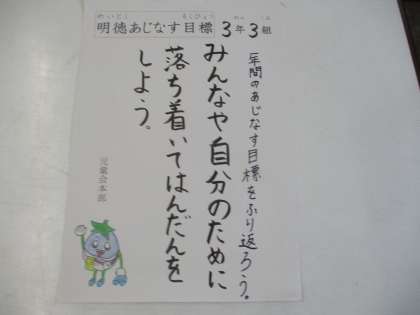 明徳あじなす目標
めいとく
もくひょう
3年3組
ねん
くみ
一年間のあじなす目標をふり返ろう。
みんなや自分のために
落ち着いてはんだんを
しよう。
児童会本部